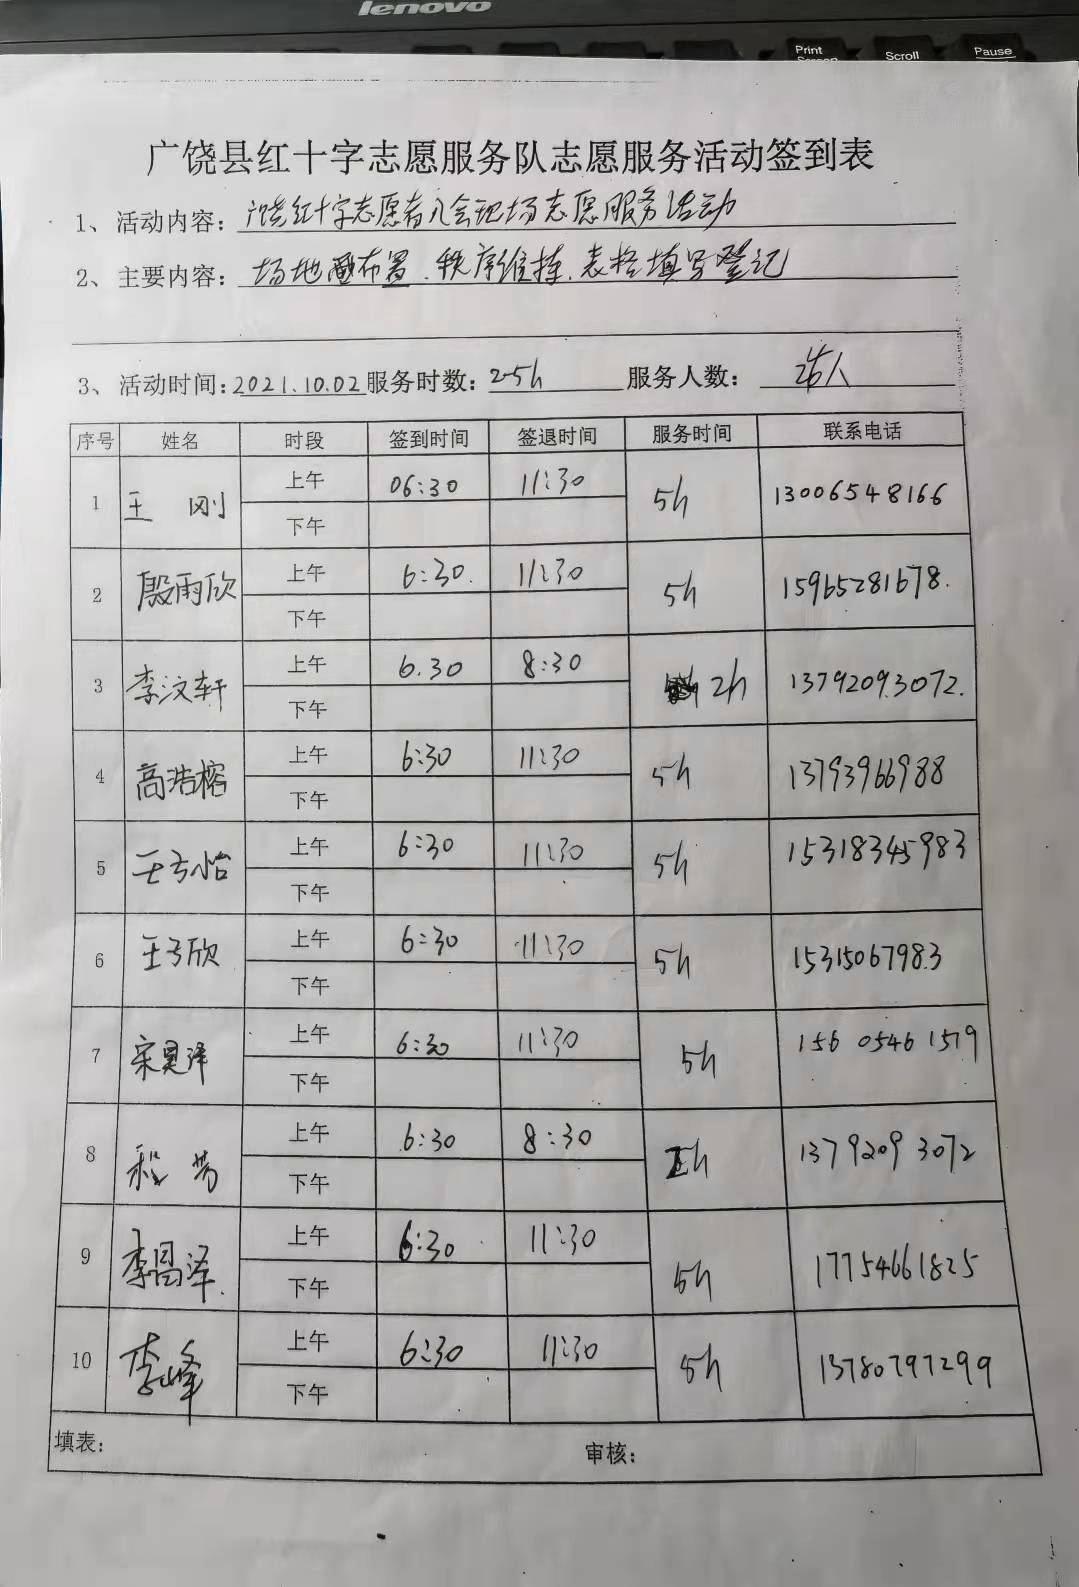 lenovo
Print
Screen
Scroll
Pause
广饶县红十字志愿服务队志愿服务活动签到表
1、活动内容：广饶红十字志愿者入会现场志愿服务活动
2、主要内容：场地布置.秩序维持.表格填写登记
3、活动时间：2021.10.02 服务时数：25h 服务人数：人
序号 姓名 时段 签到时间 签退时间 服务时间 联系电话
1 王刚 上午 06:30 11:30 5h 13006548166
下午
2 殷雨欣 上午 6:30. 11:30 5h 15965281678.
下午
3 李汶轩 上午 6.30 8:30 2h 13792093072.
下午
4 高浩榕 上午 6:30 11:30 5h 13793966988
下午
5 王兮怡 上午 6:30 11:30 5h 15318345983
下午
6 王兮欣 上午 6:30 11:30 5h 15315067983
下午
7 宋昊泽 上午 6:30 11:30 5h 156 0546 1519
下午
8 程芳 上午 6:30 8:30 h 13792093072
下午
9 李昌泽 上午 6:30 11:30 5h 17754661825
下午
10 李峰 上午 6:30 11:30 5h 13780797299
下午
填表： 审核：